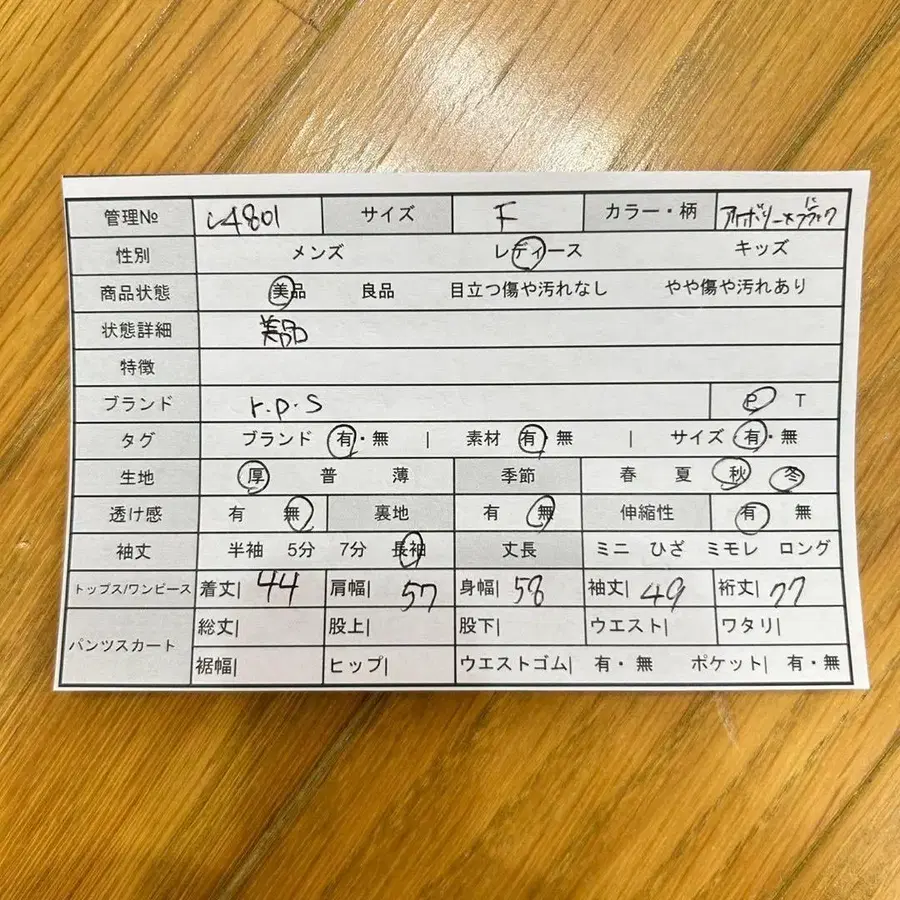 管理№ L4801 サイズ F カラー・柄 アイボリー×ブラック
性別 メンズ レディース キッズ
商品状態 美品 良品 目立つ傷や汚れなし やや傷や汚れあり
状態詳細 美品
特徴
ブランド r.p.s P T
タグ ブランド 有・無 | 素材 有・無 | サイズ 有・無
生地 厚 普 薄 季節 春 夏 秋 冬
透け感 有 無 裏地 有 無 伸縮性 有 無
袖丈 半袖 5分 7分 長袖 丈長 ミニ ひざ ミモレ ロング
トップス/ワンピース 着丈| 44 肩幅| 57 身幅| 58 袖丈| 49 裄丈| 77
パンツスカート 総丈| 股上| 股下| ウエスト| ワタリ|
裾幅| ヒップ| ウエストゴム| 有・無 ポケット| 有・無